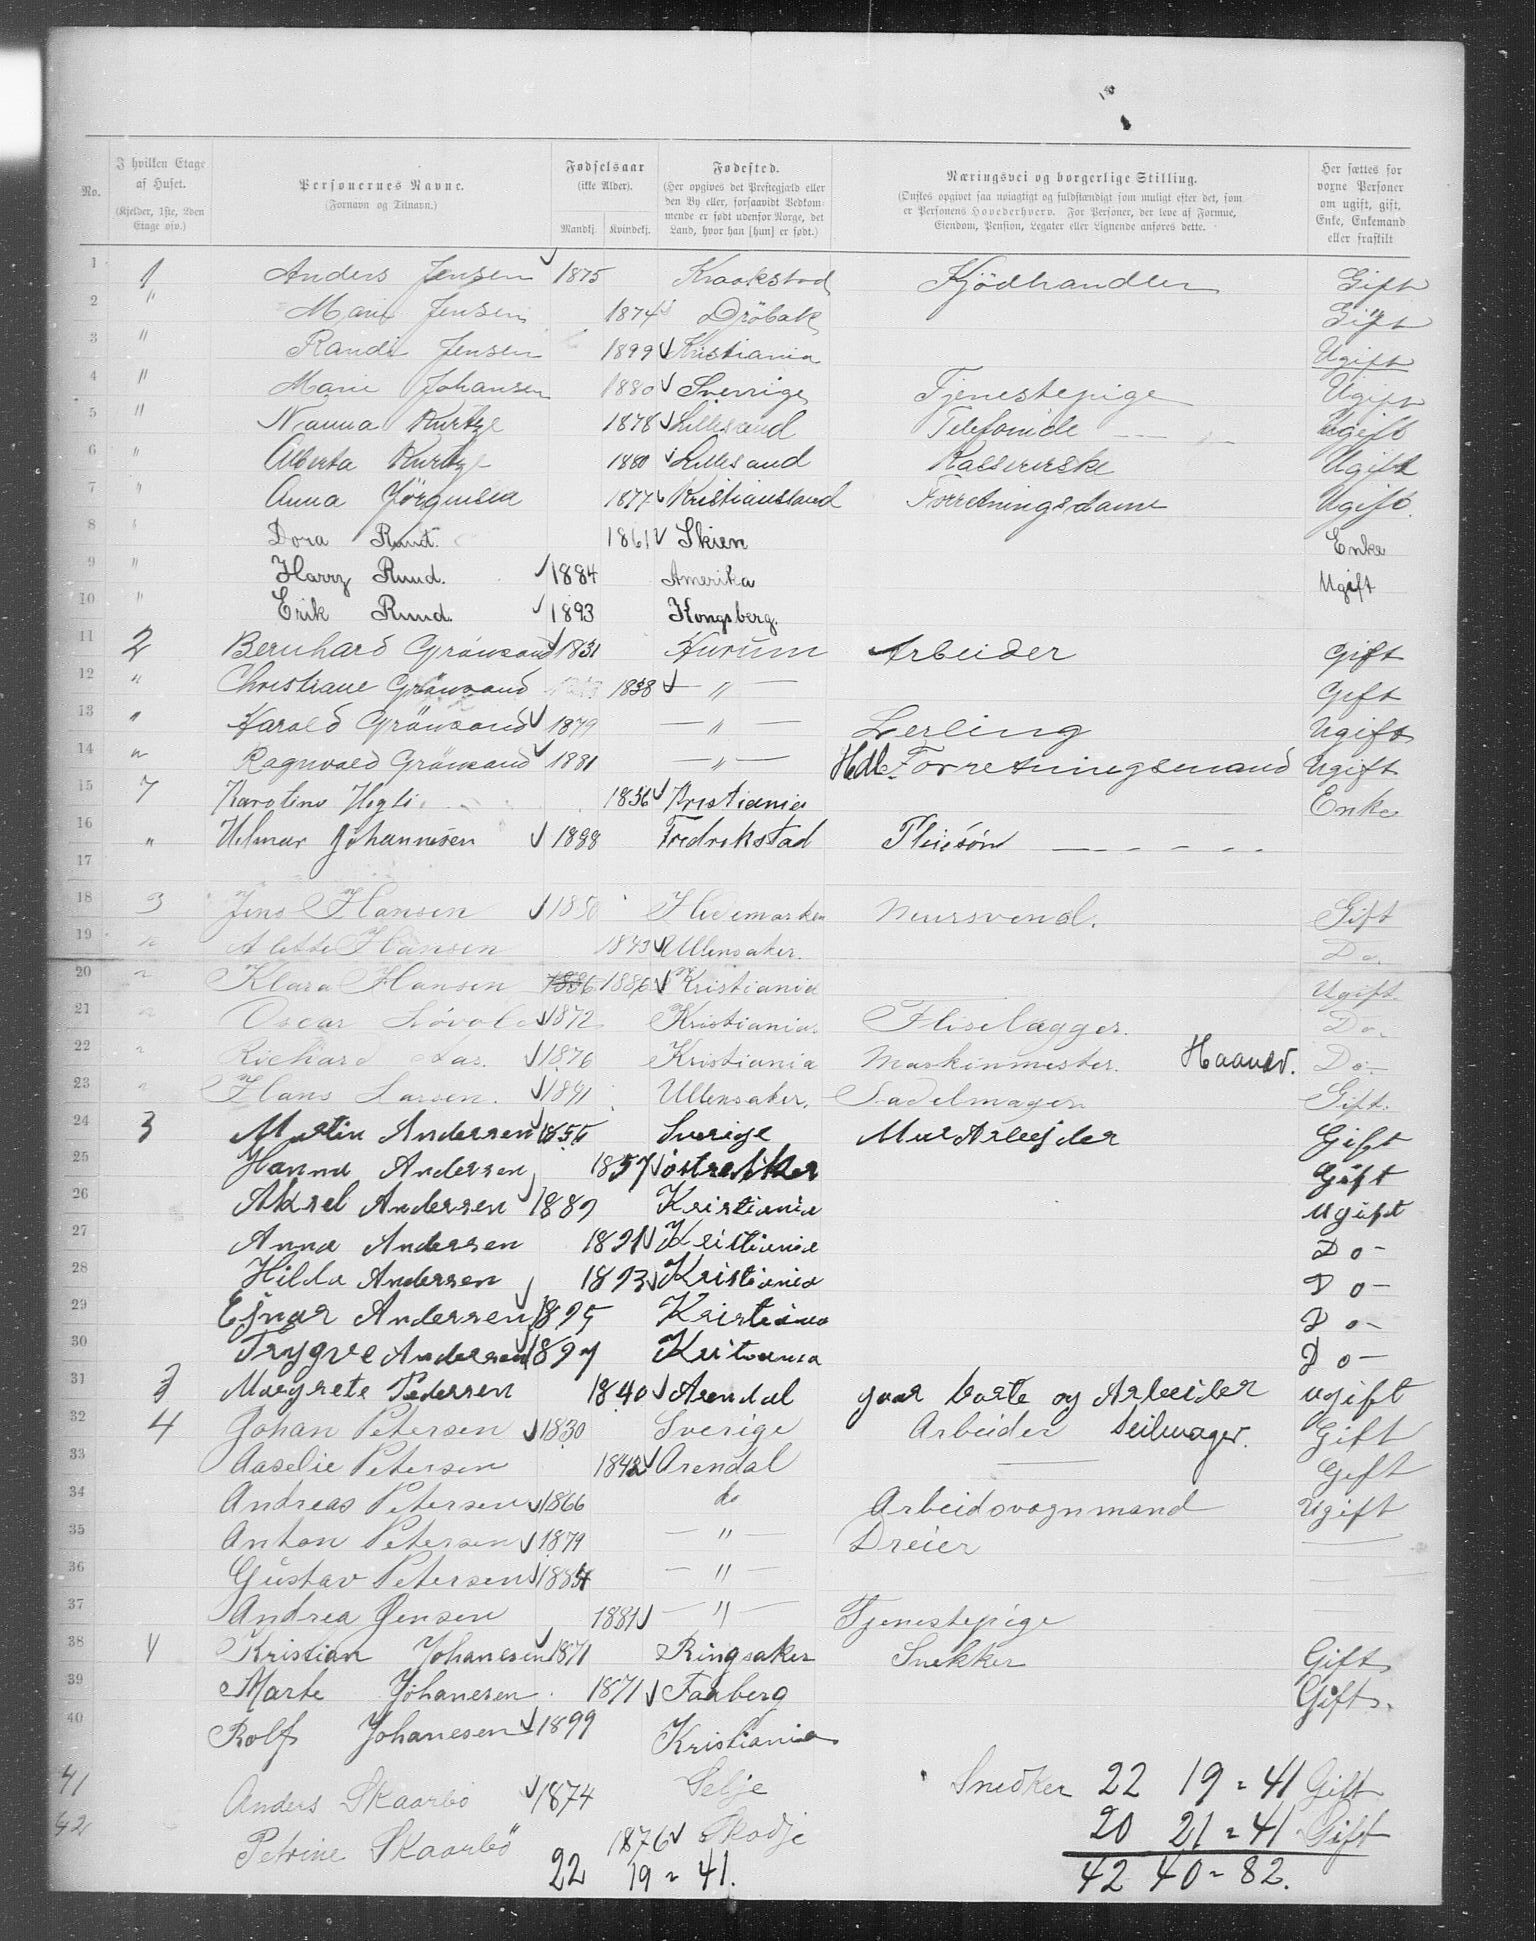 No.
I hvilken Etage af Huset. (Kjelder, 1ste, 2den Etage osv.)
Personernes Navne. (Fornavn og Tilnavn.)
Fødselsaar (ikke Alder). Mandkj. Kvindekj.
Fødested. (Her opgives det Prestegjæld eller den By eller, forsaavidt Vedkommende er født udenfor Norge, det Land, hvor han [hun] er født.)
Næringsvei og borgerlige Stilling. (Ønskes opgivet saa nøiagtigt og fuldstændigt som muligt efter det, som er Personens Hovederhverv. For Personer, der leve af Formue, Eiendom, Pension, Legater eller Lignende anføres dette.
Her sættes for voxne Personer om ugift, gift, Enke, Enkemand eller fraskilt
1 1 Anders Jensen 1875 Kraakstad Kjödhandler Gift
2 " Marie Jensen 1874 Dröbak Gift
3 " Randi Jensen 1899 Kristiania Ugift
4 " Marie Johansen 1880 Sverrige Tjenestepige Ugift
5 " Nanna Kurtze 1878 Lillesand Telefonide Ugift
6 " Alberta Kurtze 1880 Lillesand Kassererske Ugift
7 " Anna Jörgensen 1877 Kristiansand Forretningsdame Ugift
8 " Dora Ruud. 1861 Skien Enke
9 " Harry Ruud. 1884 Amerika Ugift
10 " Erik Ruud. 1893 Kongsberg.
11 2 Bernhard Grönsand 1831 Hurum Arbeider gift
12 " Christiane Grönsand 1838 — " — Gift
13 " Harald Grönsand 1879 — " — Lerling Ugift
14 " Ragnvald Grönsand 1881 — " — Hdl. Forretningsmand Ugift
15 7 Karoline 1836 Kristiania Enke
16 " Hilmar Johannesen 1888 Fredrikstad Pleiesön
17
18 3 Jens Hansen 1850 Hedemarken Mursvend. Gift
19 " Alette Hansen 1843 Ullensaker. Do.
20 " Klara Hansen 1886 1886 Kristiania Ugift
21 " Oscar Lövold 1872 Kristiania. Fliselægger. Do.
22 " Richard Aas. 1876 Kristiania Maskinmester. Haandv. Do.
23 " Hans Larsen. 1841 Ullensaker. Sadelmager Gift.
24 3 Martin Andersen 1855 Sverige Mur Arbejder Gift
25 Hanna Andersen 1857 Gift
26 Aksel Andersen 1889 Kristiania Ugift
27 Anna Andersen 1891 Kristiania Do-
28 Hilda Andersen 1893 Kristiania Do-
29 Ejnar Andersen 1895 Kristiania Do-
30 Trygve Andersen 1897 Kristiania Do-
31 3 Margrete Pedersen 1840 Arendal gaar borte og Arbeider ugift
32 4 Johan Petersen 1830 Sverige Arbeider Seilmager. Gift
33 Aaselie Petersen 1842 Arendal — Gift
34 Andreas Petersen 1866 do Arbeidsvognmand Ugift
35 Anton Petersen 1879 — " — Dreier —
36 Gustav Petersen 1884 — " — —
37 Andrea Jensen 1881 — " — Tjenestepige
38 4 Kristian Johanesen 1871 Ringsaker Snekker Gift
39 Marte Johanesen 1871 Faaberg Gift
40 Rolf Johanesen 1899 Kristiania
41 Anders Skaarbö 1874 Selje Snedker 22 19 = 41 Gift
42 Petrine Skaarbö 1876 Skodje 20 21 = 41 Gift
22 19 = 41. 42 40 = 82.